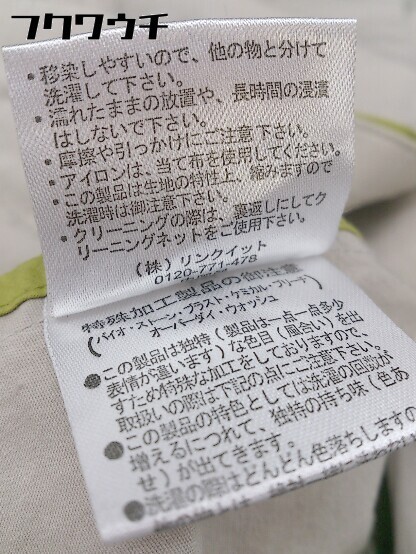 フクワウチ
・移染しやすいので、他の物と分けて
洗濯して下さい。
・濡れたままの放置や、長時間の浸漬
はしないで下さい。
・摩擦や引っかけにご注意下さい。
・アイロンは、当て布を使用してください。
・この製品は生地の特性上、縮みますので
洗濯時は御注意下さい。
・クリーニングの際は、裏返しにしてク
リーニングネットをご使用下さい。
(株)リンクイット
0120-771-478
特殊加工製品の御注意
(バイオ・ストーン・ブラスト・ケミカル・ブリーチ
オーバーダイ・ウォッシュ)
●この製品は独特(製品は一点一点多少
表情が違います)な色目(風合い)を出
すため特殊な加工をしておりますので、
取扱いの際は下記の点にご注意下さい。
●この製品の特色としては洗濯の回数が
増えるにつれて、独特の持ち味(色あ
せ)が出てきます。
●洗濯の際はどんどん色落ちしますの